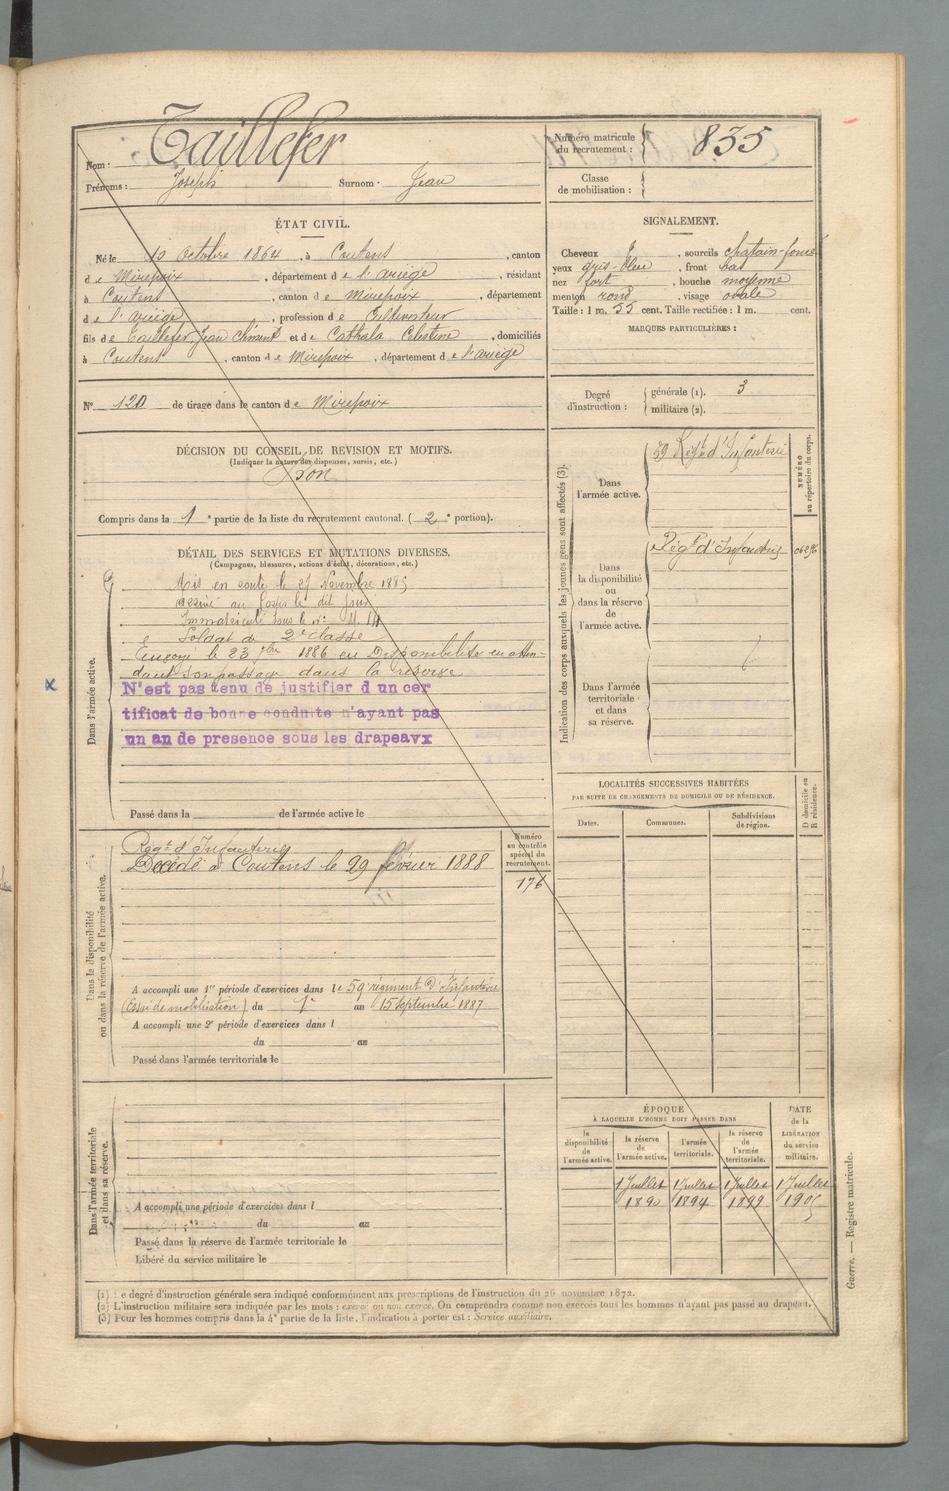 Nom : Taillefer
Prénoms : Joseph Surnom : Jean
Numéro matricule du recrutement : 835
Classe de mobilisation :
ÉTAT CIVIL.
Né le 10 octobre 1864, à Coutens, canton
de Mirepoix, département de l'ariège, résidant
à Coutens, canton de Mirepoix, département
de l'ariège, profession de Cultivateur
fils de Taillefer Jean Clément et de Cathala Célestine, domiciliés
à Coutens, canton de Mirepoix, département de l'ariège
SIGNALEMENT.
Cheveux , sourcils chatain-foncé
yeux gris-bleu, front bas
nez fort, bouche moyenne
menton rond, visage ovale
Taille : 1 m. 55 cent. Taille rectifiée : 1 m. cent.
MARQUES PARTICULIÈRES :
N° 120 de tirage dans le canton de Mirepoix
Degré d'instruction : générale (1). 3
militaire (2).
DÉCISION DU CONSEIL DE REVISION ET MOTIFS.
(Indiquer la nature des dispenses, sursis, etc.)
Bon
Compris dans la 1e partie de la liste du recrutement cantonal. (2e portion).
DÉTAIL DES SERVICES ET MUTATIONS DIVERSES.
(Campagnes, blessures, actions d'éclat, décorations, etc.)
Dans l'armée active.
Mis en route le 27 Novembre 1885
arrivé au Corps le dit jour
Immatriculé sous le n°
Soldat de 2e classe
Envoyé le 23 7bre 1886 en Disponibilité en atten-
dant son passage dans la réserve
N'est pas tenu de justifier d un cer
tificat de bonne conduite n'ayant pas
un an de presence sous les drapeavx
Passé dans la de l'armée active le
Indication des corps auxquels les jeunes gens sont affectés (3).
NUMÉRO au répertoire du corps.
Dans l'armée active.
59 Régt d'Infanterie
Dans la disponibilité ou dans la réserve de l'armée active.
Régt d'Infanterie
Dans l'armée territoriale et dans sa réserve.
LOCALITÉS SUCCESSIVES HABITÉES
PAR SUITE DE CHANGEMENTS DE DOMICILE OU DE RÉSIDENCE.
Dates. Communes. Subdivisions de région. D domicile ou R résidence.
Dans la disponibilité ou dans la réserve de l'armée active.
Numéro au contrôle spécial du recrutement.
176
Regt d'Infanterie
Décédé à Coutens le 29 février 1888
A accompli une 1re période d'exercices dans le 59e régiment d'Infanterie
(Essai de mobilisation) du 1er au 15 Septembre 1887
A accompli une 2e période d'exercices dans l
du au
Passé dans l'armée territoriale le
Dans l'armée territoriale et dans sa réserve.
A accompli une période d'exercices dans l
du au
Passé dans la réserve de l'armée territoriale le
Libéré du service militaire le
ÉPOQUE
À LAQUELLE L'HOMME DOIT PASSER DANS
DATE de la LIBÉRATION du service militaire.
la disponibilité de l'armée active. la réserve de l'armée active. l'armée territoriale. la réserve de l'armée territoriale.
1 Juillet 1 Juillet 1 Juillet 1 Juillet
1890 1894 1899 1905
(1) Le degré d'instruction générale sera indiqué conformément aux prescriptions de l'instruction du 26 novembre 1872.
(2) L'instruction militaire sera indiquée par les mots : exercé ou non exercé. On comprendra comme non exercés tous les hommes n'ayant pas passé au drapeau.
(3) Pour les hommes compris dans la 4e partie de la liste, l'indication à porter est : Service auxiliaire.
Guerre. — Registre matricule.